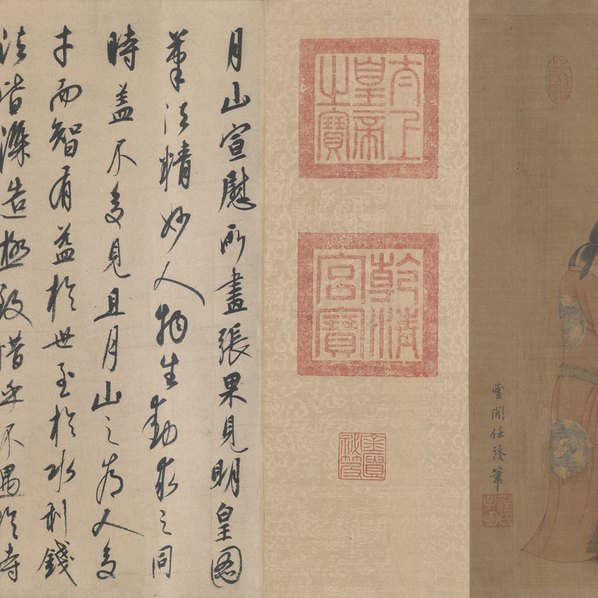 雲間任陵筆
太上皇帝之寶
乾清宮寶
月山宣慰所畫張果見明皇圖
筆法精妙人物生動求之同
時蓋不多見且月山之為人多
才而智有益於世至於水利錢
法皆深造極致惜乎不遇於時